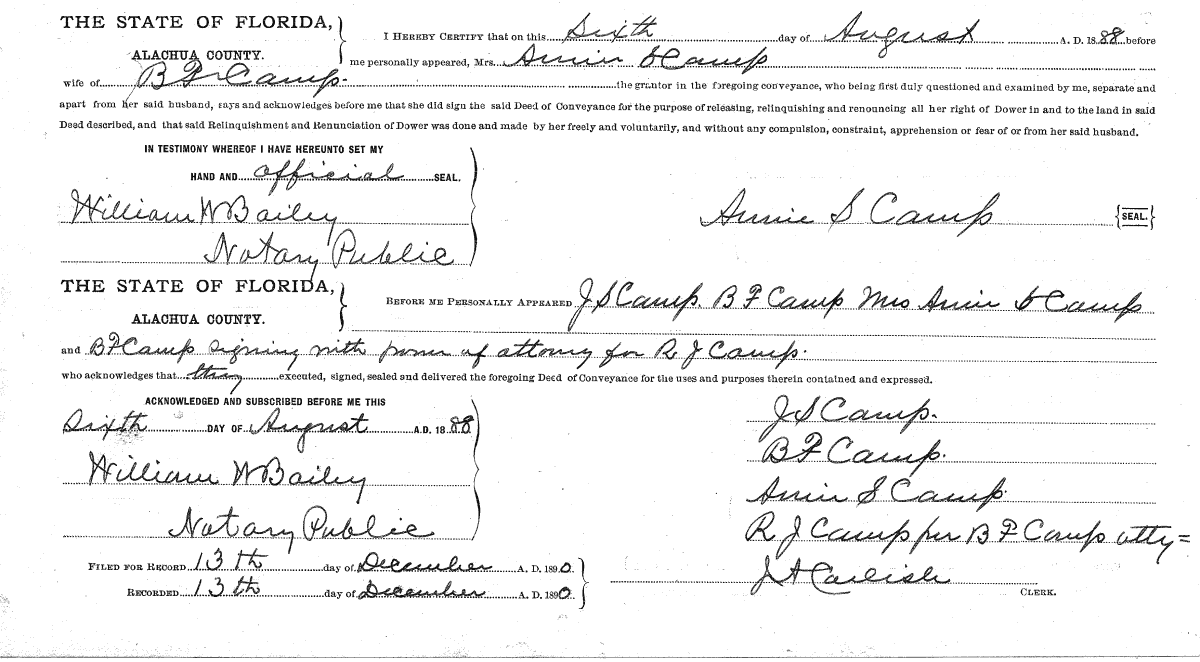 THE STATE OF FLORIDA,
ALACHUA COUNTY.
I HEREBY CERTIFY that on this Sixth day of August A. D. 1888 before
me personally appeared, Mrs. Annie S Camp
wife of B F Camp. the grantor in the foregoing conveyance, who being first duly questioned and examined by me, separate and
apart from her said husband, says and acknowledges before me that she did sign the said Deed of Conveyance for the purpose of releasing, relinquishing and renouncing all her right of Dower in and to the land in said
Deed described, and that said Relinquishment and Renunciation of Dower was done and made by her freely and voluntarily, and without any compulsion, constraint, apprehension or fear of or from her said husband.
IN TESTIMONY WHEREOF I HAVE HEREUNTO SET MY
HAND AND official SEAL.
William W Bailey
Notary Public
Annie S Camp {SEAL.}
THE STATE OF FLORIDA,
ALACHUA COUNTY.
BEFORE ME PERSONALLY APPEARED J S Camp. B F Camp Mrs Annie S Camp
and B F Camp signing with power of attorney for R J Camp.
who acknowledges that they executed, signed, sealed and delivered the foregoing Deed of Conveyance for the uses and purposes therein contained and expressed.
ACKNOWLEDGED AND SUBSCRIBED BEFORE ME THIS
Sixth DAY OF August A.D. 1888
William W Bailey
Notary Public
J S Camp.
B F Camp.
Annie S Camp.
R J Camp per B F Camp atty=
FILED FOR RECORD 13th day of December A. D. 1890.
RECORDED 13th day of December A. D. 1890.
J A Carlisle
CLERK.